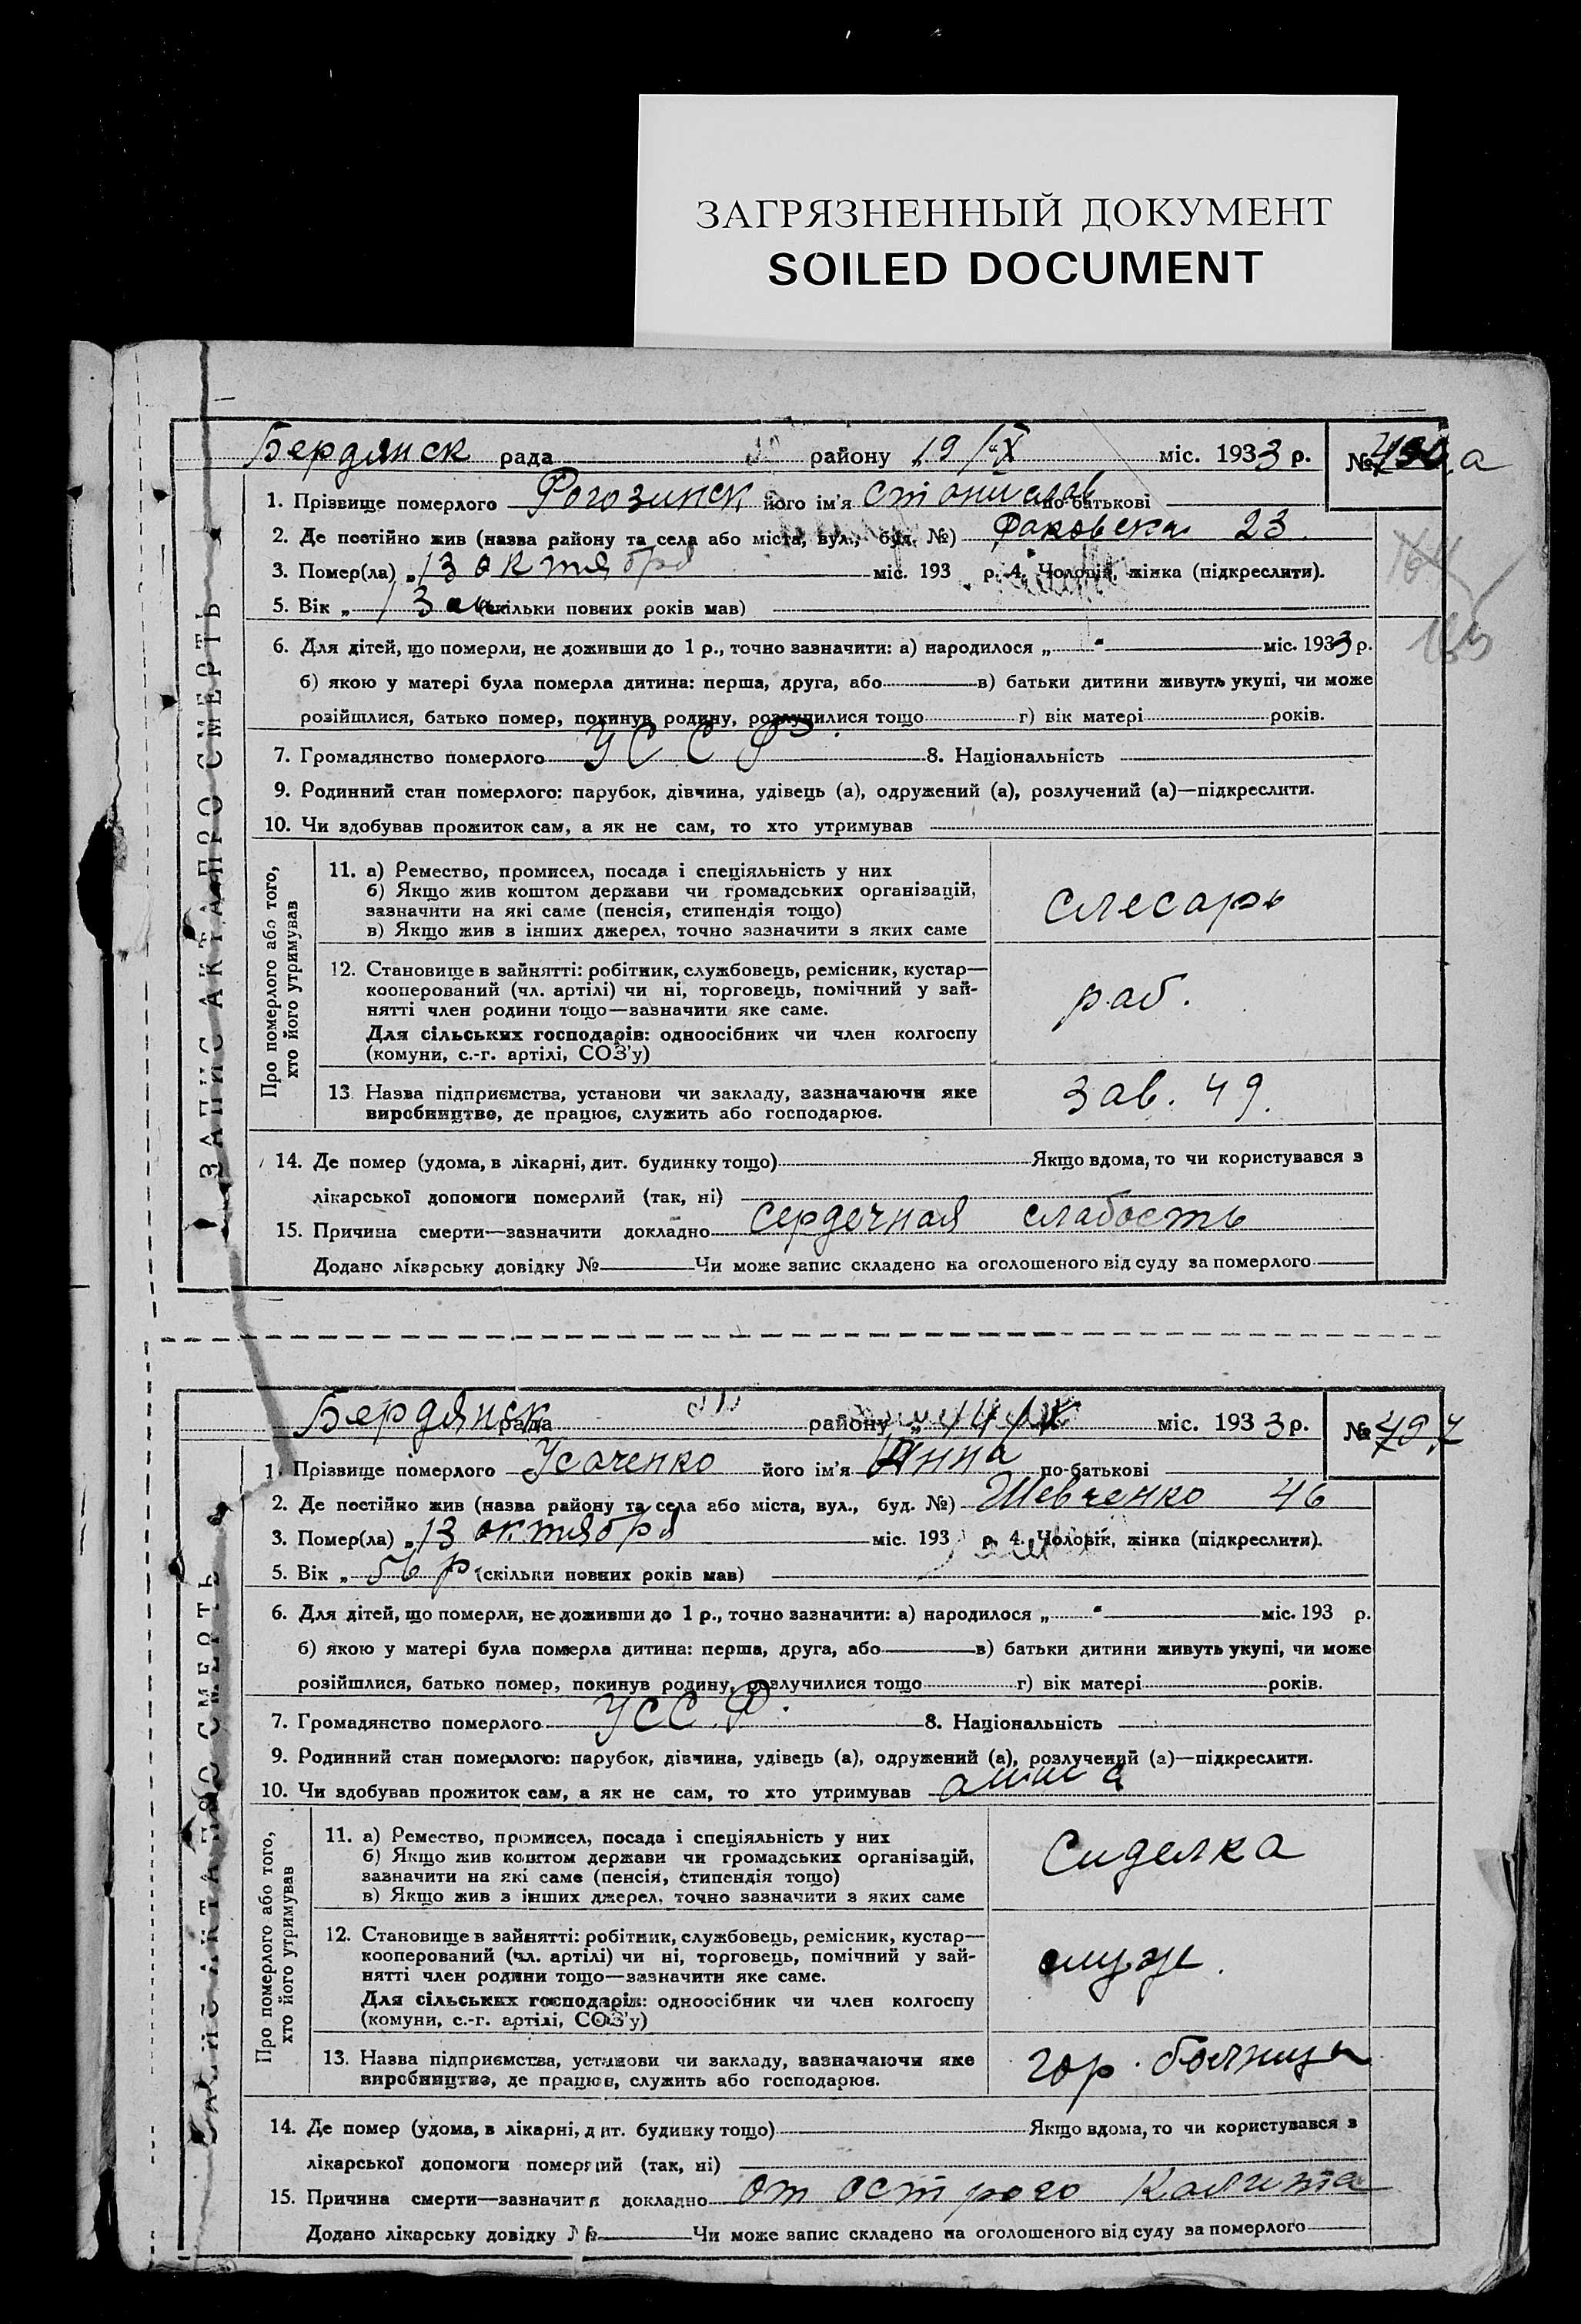 ЗАГРЯЗНЕННЫЙ ДОКУМЕНТ
SOILED DOCUMENT
ЗАПИС АКТА ПРО СМЕРТЬ
Бердянск рада району „19/X міс. 1933 р. №
1. Прізвище померлого Рогозинск його ім'я Станислав по-батькові
2. Де постійно жив (назва району та села або міста, вул., буд. №) Раковская 23
3. Помер(ла) „13 октября міс. 193 р. 4. Чоловік, жінка (підкреслити).
5. Вік „ (скільки повних років мав)
6. Для дітей, що померли, не доживши до 1 р., точно зазначити: а) народилося „ “ міс. 1933 р.
б) якою у матері була померла дитина: перша, друга, або в) батьки дитини живуть укупі, чи може
розійшлися, батько помер, покинув родину, розлучилися тощо г) вік матері років.
7. Громадянство померлого УССР. 8. Національність
9. Родинний стан померлого: парубок, дівчина, удівець (а), одружений (а), розлучений (а)—підкреслити.
10. Чи здобував прожиток сам, а як не сам, то хто утримував
Про померлого або того,
хто його утримував
11. а) Ремество, промисел, посада і спеціяльність у них
б) Якщо жив коштом держави чи громадських організацій,
зазначити на які саме (пенсія, стипендія тощо)
в) Якщо жив з інших джерел, точно зазначити з яких саме
слесарь
12. Становище в зайнятті: робітник, службовець, ремісник, кустар—
кооперований (чл. артілі) чи ні, торговець, помічний у зай-
нятті член родини тощо—зазначити яке саме.
Для сільських господарів: одноосібник чи член колгоспу
(комуни, с.-г. артілі, СОЗ'у)
раб.
13. Назва підприємства, установи чи закладу, зазначаючи яке
виробництво, де працює, служить або господарює.
зав. 49.
14. Де помер (удома, в лікарні, дит. будинку тощо) Якщо вдома, то чи користувався з
лікарської допомоги померлий (так, ні)
15. Причина смерти—зазначити докладно сердечная слабость
Додано лікарську довідку № Чи може запис складено на оголошеного від суду за померлого
ЗАПИС АКТА ПРО СМЕРТЬ
Бердянск рада району „ міс. 1933 р. №
1. Прізвище померлого Усаченко його ім'я Анна по-батькові
2. Де постійно жив (назва району та села або міста, вул., буд. №) Шевченко 46
3. Помер(ла) „13 октября міс. 193 р. 4. Чоловік, жінка (підкреслити).
5. Вік „ 56 р (скільки повних років мав)
6. Для дітей, що померли, не доживши до 1 р., точно зазначити: а) народилося „ “ міс. 193 р.
б) якою у матері була померла дитина: перша, друга, або в) батьки дитини живуть укупі, чи може
розійшлися, батько помер, покинув родину, розлучилися тощо г) вік матері років.
7. Громадянство померлого УССР. 8. Національність
9. Родинний стан померлого: парубок, дівчина, удівець (а), одружений (а), розлучений (а)—підкреслити.
10. Чи здобував прожиток сам, а як не сам, то хто утримував
Про померлого або того,
хто його утримував
11. а) Ремество, промисел, посада і спеціяльність у них
б) Якщо жив коштом держави чи громадських організацій,
зазначити на які саме (пенсія, стипендія тощо)
в) Якщо жив з інших джерел, точно зазначити з яких саме
Сиделка
12. Становище в зайнятті: робітник, службовець, ремісник, кустар—
кооперований (чл. артілі) чи ні, торговець, помічний у зай-
нятті член родини тощо—зазначити яке саме.
Для сільських господарів: одноосібник чи член колгоспу
(комуни, с.-г. артілі, СОЗ'у)
служ.
13. Назва підприємства, установи чи закладу, зазначаючи яке
виробництво, де працює, служить або господарює.
гор. больница
14. Де помер (удома, в лікарні, дит. будинку тощо) Якщо вдома, то чи користувався з
лікарської допомоги померлий (так, ні)
15. Причина смерти—зазначити докладно от острого Колита
Додано лікарську довідку № Чи може запис складено на оголошеного від суду за померлого